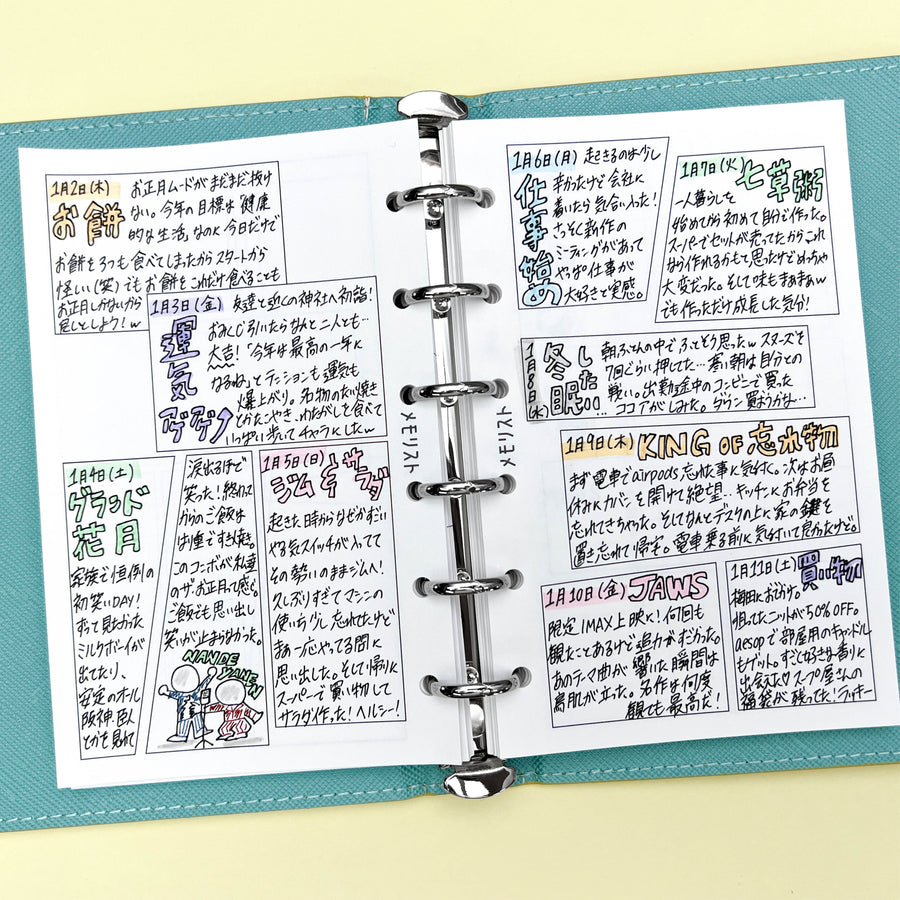 1月2日(木)
お餅
お正月ムードがまだまだ抜け
ない。今年の目標は"健康
的な生活"なのに今日だけで
お餅を3つも食べてしまったからスタートから
怪しい(笑)でもお餅をこれだけ食べることも
お正月しかないから
良しとしよう!w
1月3日(金)
運気アゲアゲ↑
友達と近くの神社へ初詣!
おみくじ引いたらなんと二人とも…
大吉!「今年は最高の一年に
なるね」とテンションも運気も
爆上がり。名物のたい焼き
とかたこやき、わたがしを食べて
いっぱい歩いてチャラにしたw
1月4日(土)
グランド
花月
家族で恒例の
初笑いDAY!
ずっと見たかった
ミルクボーイが
出てたり、
安定のオール
阪神巨人
とかを見れて
涙出るほど
笑った!終わって
からのご飯は
はり重ですき焼き。
このコンボが私達
のザ・お正月って感じ。
ご飯でも思い出し
笑いが止まらなかった。
NANDE
YANEN
1月5日(日)
ジム&サラダ
起きた時からなぜかすごい
やる気スイッチが入ってて
その勢いのままジムへ!
久しぶりすぎてマシンの
使い方少し忘れてたけど
まあ一応やってる間に
思い出した。そして帰りに
スーパーで買い物して
サラダ作った!ヘルシー!
メモリスト
メモリスト
1月6日(月)
仕事始め
起きるのは少し
辛かったけど会社に
着いたら気合い入った!
さっそく新作の
ミーティングがあって
やっぱ仕事が
大好きと実感。
1月7日(火)
七草粥
一人暮らしを
始めてから初めて自分で作った。
スーパーでセットが売ってたからこれ
なら作れるかもって思ったけどめっちゃ
大変だった。そして味もまぁまぁw
でも作っただけ成長した気分!
1月8日(水)
冬眠したい…
朝ふとんの中でふっとそう思ったw スヌーズを
7回ぐらい押してた…寒い朝は自分との
戦い。出勤途中のコンビニで買った
ココアがしみた。ダウン買おうかな…
1月9日(木)
KING OF 忘れ物
まず電車でairpods忘れた事に気付く。次はお昼
休みにカバンを開けて絶望…キッチンにお弁当を
忘れてきちゃった。そしてなんとデスクの上に家の鍵を
置き忘れて帰宅。電車乗る前に気付いて良かったけど。
1月10日(金)
JAWS
限定IMAX上映に!何回も
観たことあるけど迫力がすごかった。
あのテーマ曲が響いた瞬間は
鳥肌が立った。名作は何度
観ても最高だ!
1月11日(土)
買い物
梅田におでかけ。
狙ってたニットが50%OFF。
aesopで部屋用のキャンドル
もゲット。すごく好きな香りに
出会えた♡スープ屋さんの
福袋が残ってた!ラッキー